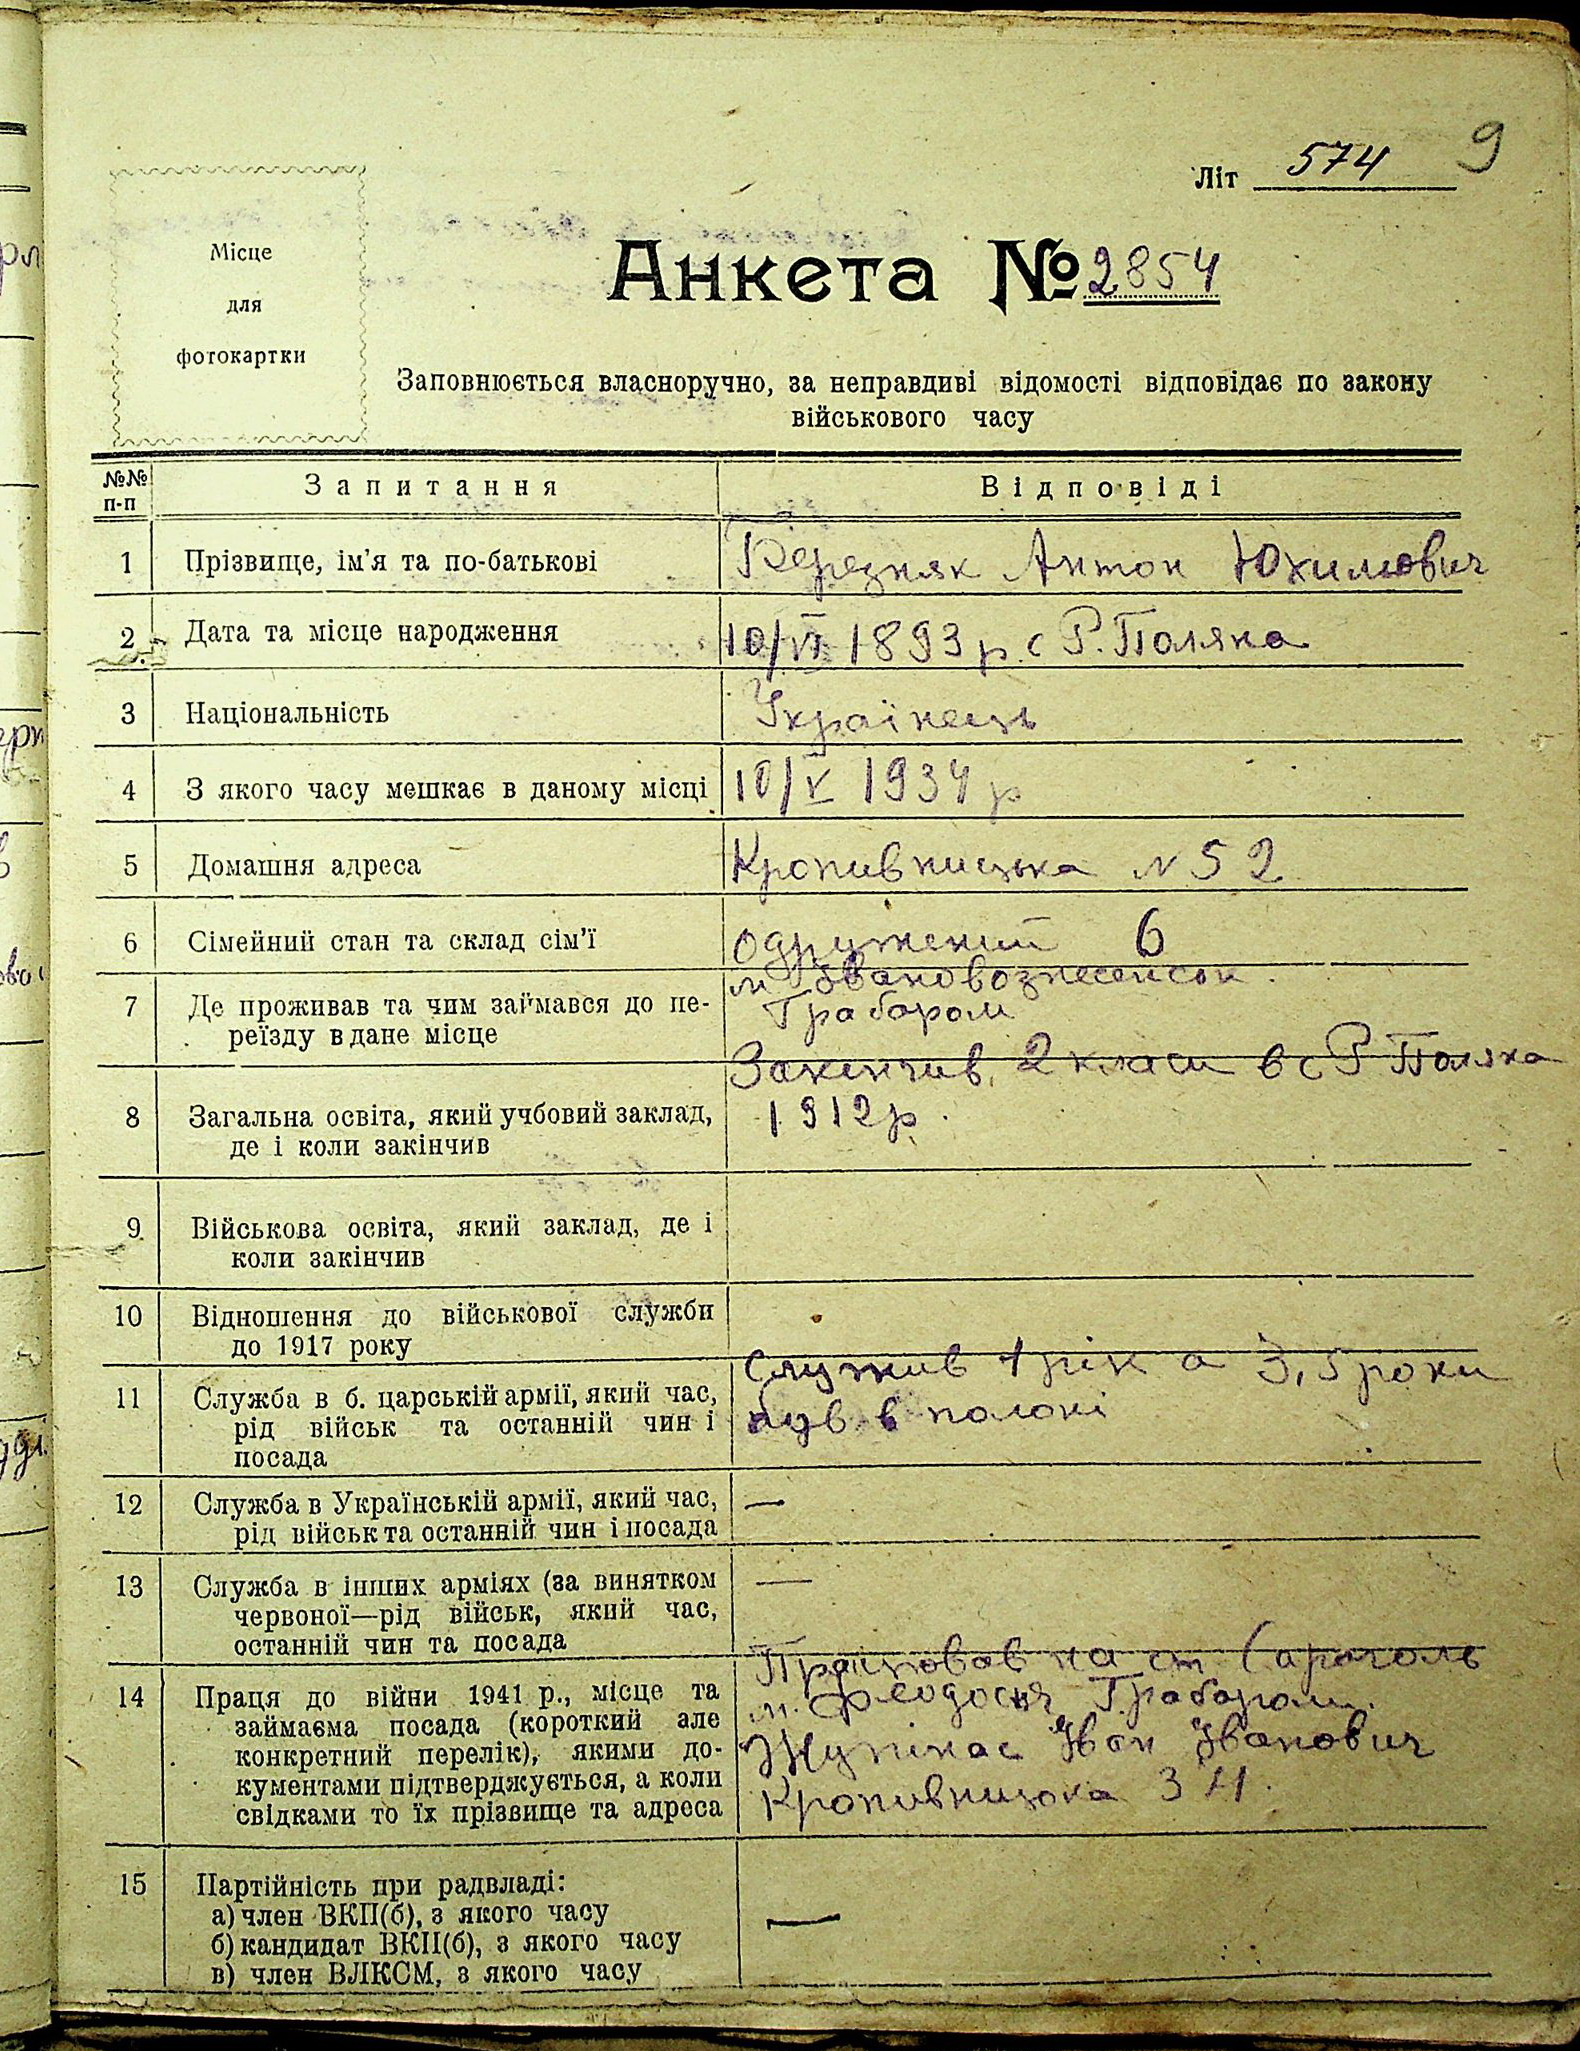 9
Літ 574
Місце
для
фотокартки
Анкета № 2854
Заповнюється власноручно, за неправдиві відомості відповідає по закону
військового часу
№№
п-п
Запитання
Відповіді
1 Прізвище, ім'я та по-батькові Березняк Антон Юхимович
2 Дата та місце народження 10/VI 1893 р. с Р. Поляна
3 Національність Українець
4 З якого часу мешкає в даному місці 10/V 1934 р
5 Домашня адреса Кропивницька N 52
6 Сімейний стан та склад сім'ї одружений 6
7 Де проживав та чим займався до пе-
реїзду в дане місце
м Івановознесенськ.
Грабаром
8 Загальна освіта, який учбовий заклад,
де і коли закінчив
Закінчив 2 класи в с Р Поляна
1912р.
9 Військова освіта, який заклад, де і
коли закінчив
10 Відношення до військової служби
до 1917 року
11 Служба в б. царській армії, який час,
рід військ та останній чин і
посада
Служив 1 рік а 3,5 роки
був в полоні
12 Служба в Українській армії, який час,
рід військ та останній чин і посада
—
13 Служба в інших арміях (за винятком
червоної—рід військ, який час,
останній чин та посада
—
14 Праця до війни 1941 р., місце та
займаєма посада (короткий але
конкретний перелік), якими до-
кументами підтверджується, а коли
свідками то їх прізвище та адреса
Працював на ст
м. Феодосия Грабаром.
Іван Іванович
Кропивницька 34.
15 Партійність при радвладі:
а) член ВКП(б), з якого часу
б) кандидат ВКП(б), з якого часу
в) член ВЛКСМ, з якого часу
—